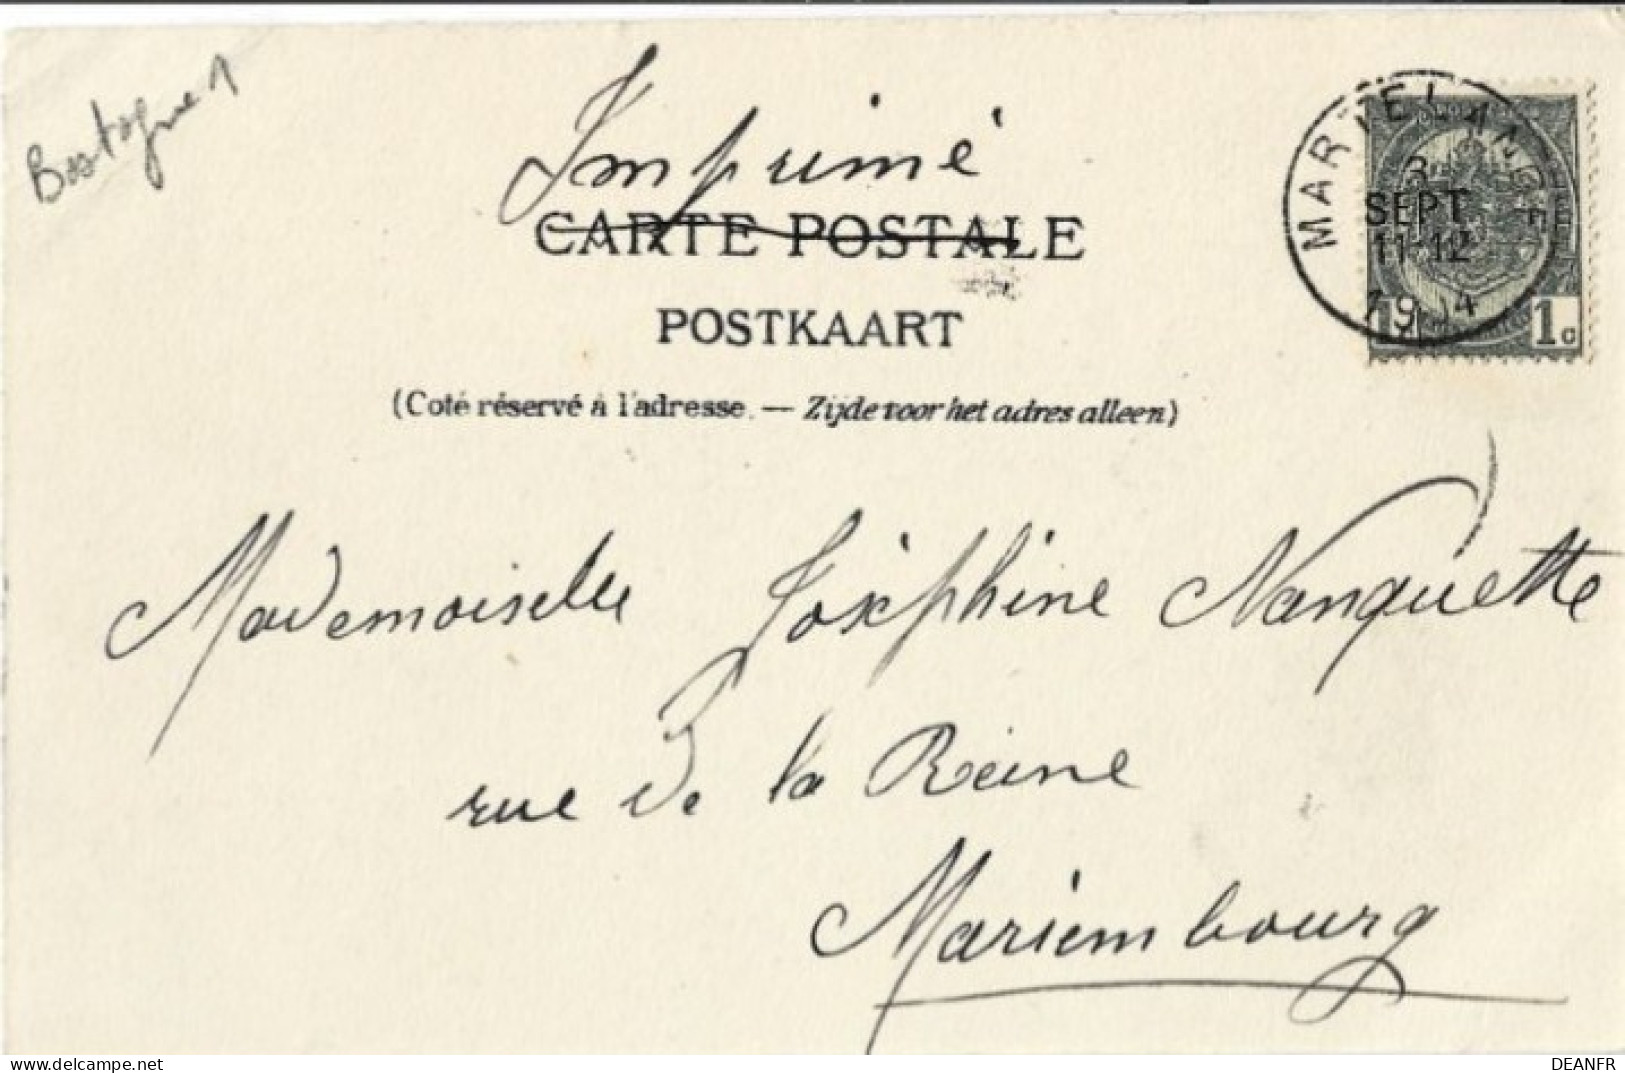 Bastogne 1
Imprimé
MARTELANGE
3
SEPT
11-12
1904
1 1c
CARTE POSTALE
POSTKAART
(Coté réservé à l'adresse. — Zijde voor het adres alleen)
Mademoiselle Joséphine Nanquette
rue de la Reine
Mariembourg
delcampe.net
DEANFR